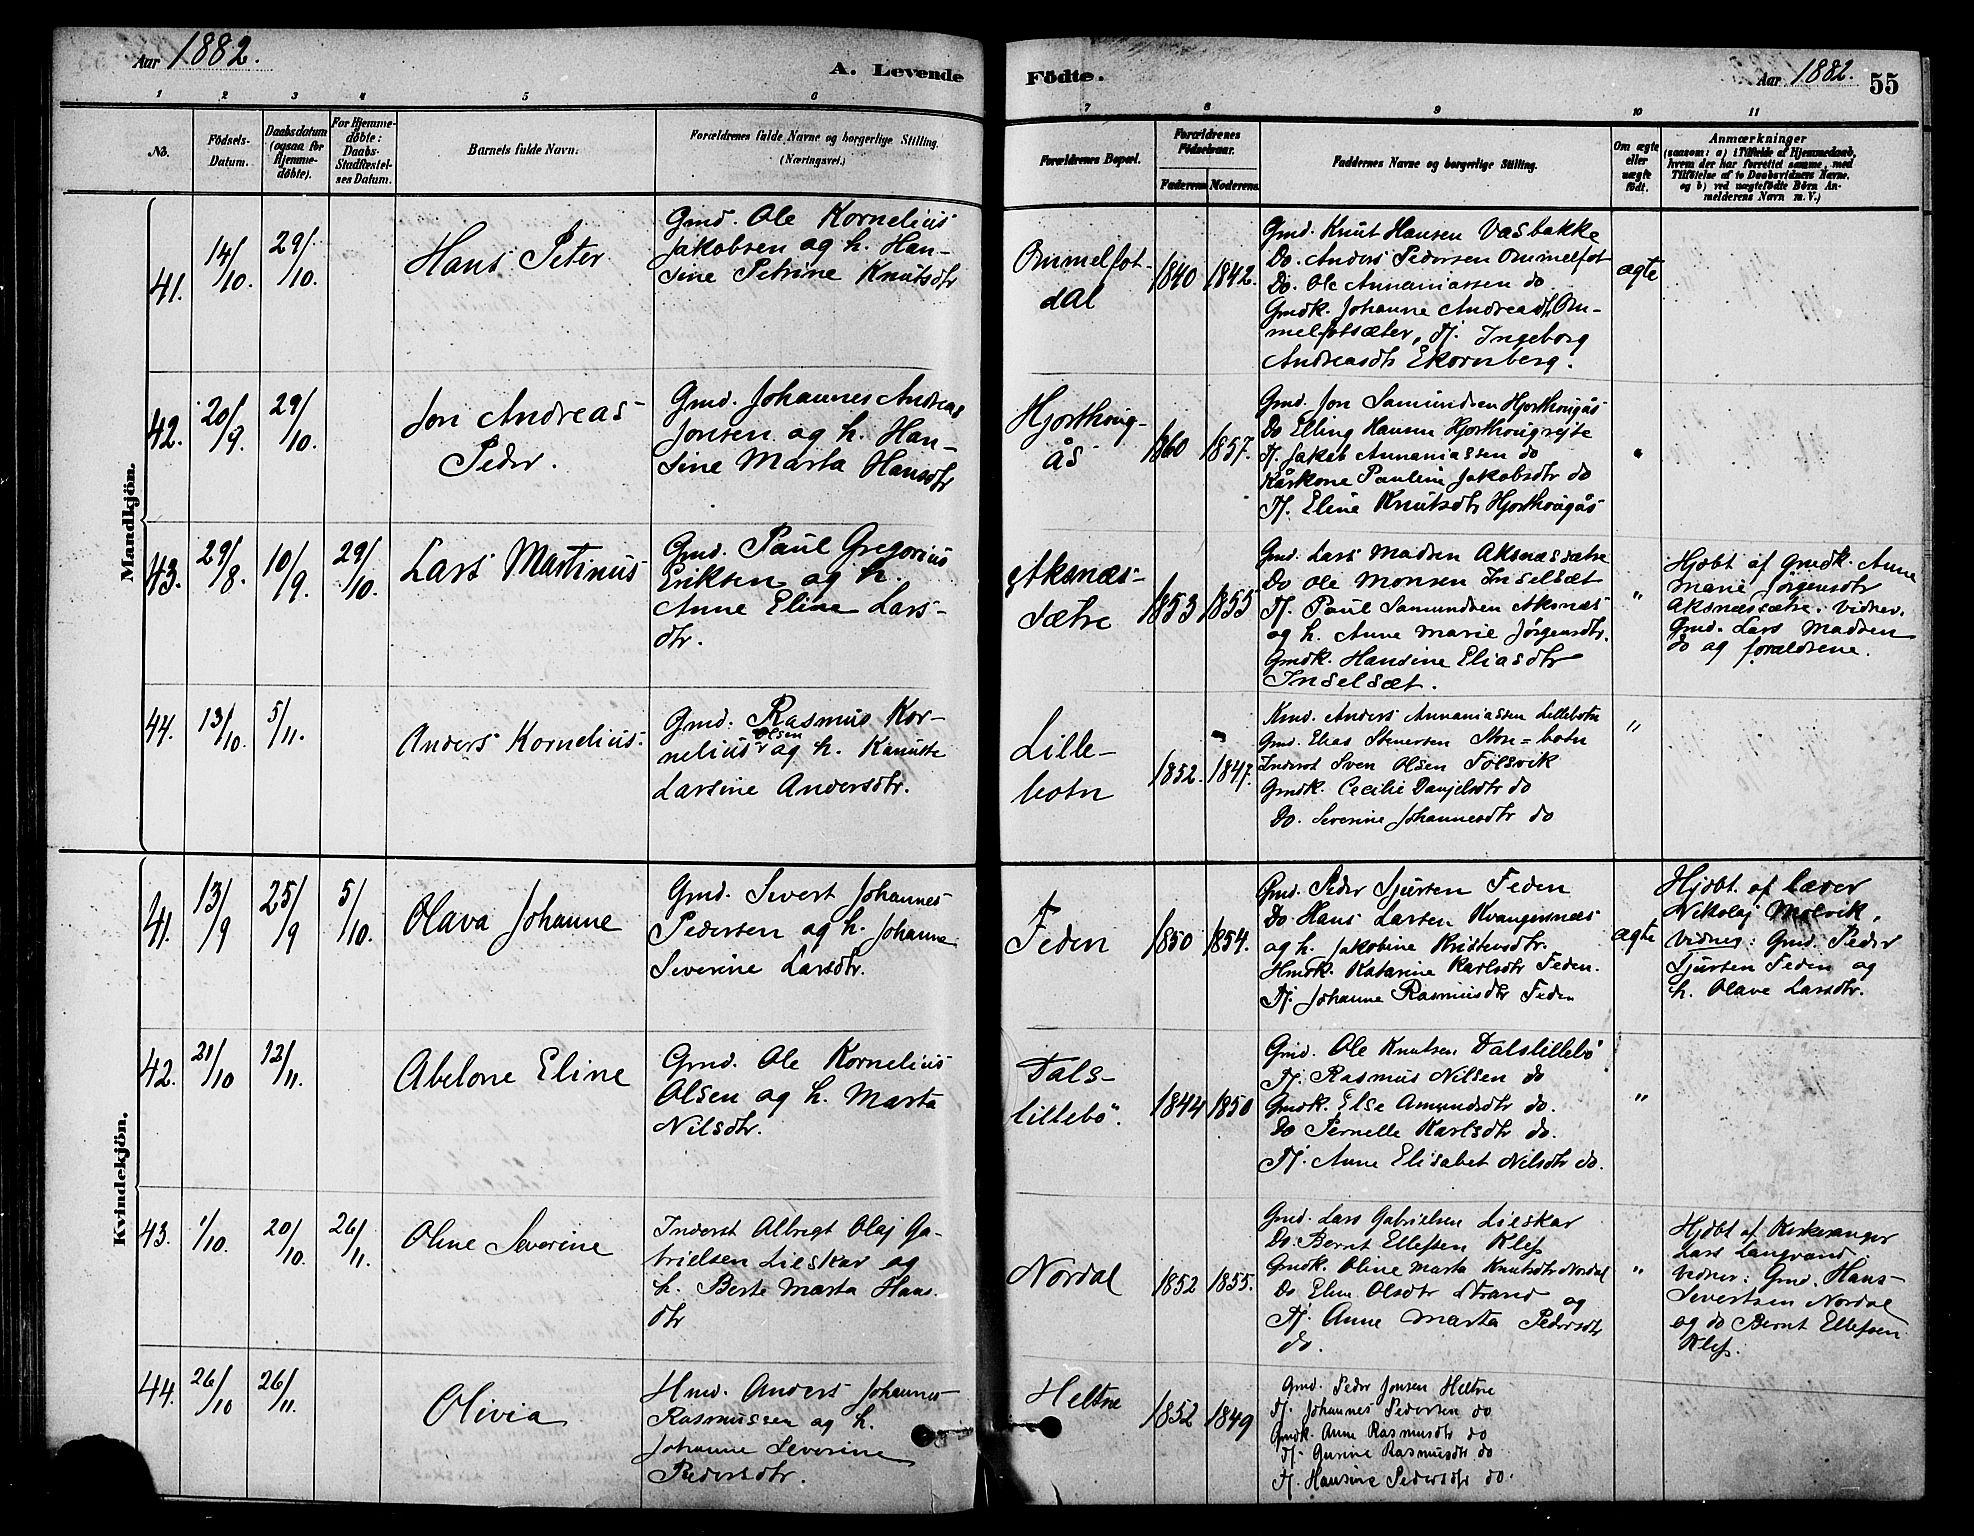 Aar 1882.
A. Levende
Födte.
Aar 1882.
55
1 2 3 4 5 6 7 8 9 10 11
No.
Födsels-
Datum.
Daabsdatum
(ogsaa for
Hjemme-
döbte).
For Hjemme-
döbte:
Daabs-
Stadfæstel-
ses Datum.
Barnets fulde Navn.
Forældrenes fulde Navne og borgerlige Stilling.
(Næringsvei.)
Forældrenes Bopæl.
Forældrenes
Födselsaar.
Faderens Moderens
Faddernes Navne og borgerlige Stilling.
Om ægte
eller
uægte
födt.
Anmærkninger
(saasom: a) i Tilfælde af Hjemmedaab,
hvem der har forrettet samme, med
Tilföielse af to Daabsvidners Navne,
og b) ved uægtefödte Börn An-
melderens Navn m. V.)
Mandkjön.
41.
14/10.
29/10.
Hans Peter
Gmd. Ole Kornelius
Jakobsen og h. Han-
sine Petrine Knutsdtr
Ommelfot-
dal
1840
1842.
Gmd. Knut Hansen Vasbakke
Do. Anders Pedersen Ommelfot
Do. Ole Annaniassen do
Gmdk. Johanne Andreasdt Om-
melfotsæter, Tj. Ingeborg
Andreasdtr Ekornsberg.
ægte
42.
20/9.
29/10.
Jon Andreas
Peder.
Gmd. Johannes Andreas
Jonsen og h. Han-
sine Marta Hansdtr
Hjorthoug-
ås
1860
1857.
Gmd. Jon Samundsen Hjorthougås
Do Elling Hansen Hjorthougrejte
Tj. Jakob Annaniassen do
Kårkone Pauline Jakobsdtr do
Tj. Eline Knutsdtr Hjorthougås
"
43.
29/8.
10/9.
29/10.
Lars Martinus
Gmd. Paul Gregorius
Eriksen og h.
Anne Eline Lars-
dtr.
Aksnæs-
sætre
1853
1855
Gmd. Lars Madsen Aksnæssætre
Do Ole Monsen Inselsæt
Tj. Paul Samundsen Aksnæs
og h. Anne Marie Jörgensdtr.
Gmdk. Hansine Eliasdtr
Inselsæt.
"
Hjdbt af Gmdk. Anne
Marie Jörgensdtr
Aksnæssætre. Vidner.
Gmd. Lars Madsen
do og forældrene.
44.
13/10.
5/11.
Anders Kornelius.
Gmd. Rasmus Kor-
nelius Olsen og h. Kanutte
Larsine Andersdtr.
Lille-
botn
1852.
1847.
Kmd. Anders Annaniassen Lillebotn
Gmd. Elias Stenersen Store=botn
Inderst Sven Olsen Fölsvik
Gmdk. Cecilie Danjelsdtr do
Do. Severine Johannesdtr do
"
Kvindekjön.
41.
13/9
25/9
5/10.
Olava Johanne
Gmd. Sivert Johannes
Pedersen og h. Johanne
Severine Larsdtr.
Feden
1850
1854.
Gmd. Peder Sjursen Feden
Do Hans Larsen Kvangersnæs
og h. Jakobine Kristensdtr.
Hmdk. Katarine Karlsdtr Feden.
Tj. Johanne Rasmusdtr Feden
ægte
Hjdbt. af Lærer
Nikolaj Molvik.
Vidner: Gmd. Peder
Sjursen Feden og
h. Olave Larsdtr.
42.
21/10
12/11.
Abelone Eline
Gmd. Ole Kornelius
Olsen og h. Marta
Nilsdtr.
Dals-
lillebö.
1844
1850
Gmd. Ole Knutsen Dalslillebö
Tj. Rasmus Nilsen do
Gmdk. Else Amundsdtr do.
Do Pernelle Karlsdtr do.
Tj. Anne Elisabet Nilsdtr do.
"
43.
1/10.
20/10.
26/11.
Oline Severine
Inderst Albregt Olaj Ga-
brielsen Lieskar og
h. Berte Marta Hans-
dtr
Nordal
1852
1855.
Gmd. Lars Gabrielsen Lieskar
Do. Bernt Ellefsen Klejs
Gmdk. Oline Marta Knutsdtr Nordal
Do Eline Olsdtr Strand og
Tj. Anne Marta Pedersdtr
do.
"
Hjdbt af Kirkesanger
Lars Langvand
Vidner: Gmd. Hans
Severtsen Nordal
og do Bernt Ellefsen
Klejs.
44.
26/10
26/11.
Olivia
Hmd. Anders Johannes
Rasmussen og h.
Johanne Severine
Pedersdtr.
Heltne
1852
1849
Gmd. Peder Jonsen Heltne
Tj. Johannes Pedersen do
Gmdk. Anne Rasmusdtr do
Tj. Gurine Rasmusdtr do
Tj. Hansine Pedersdtr do.